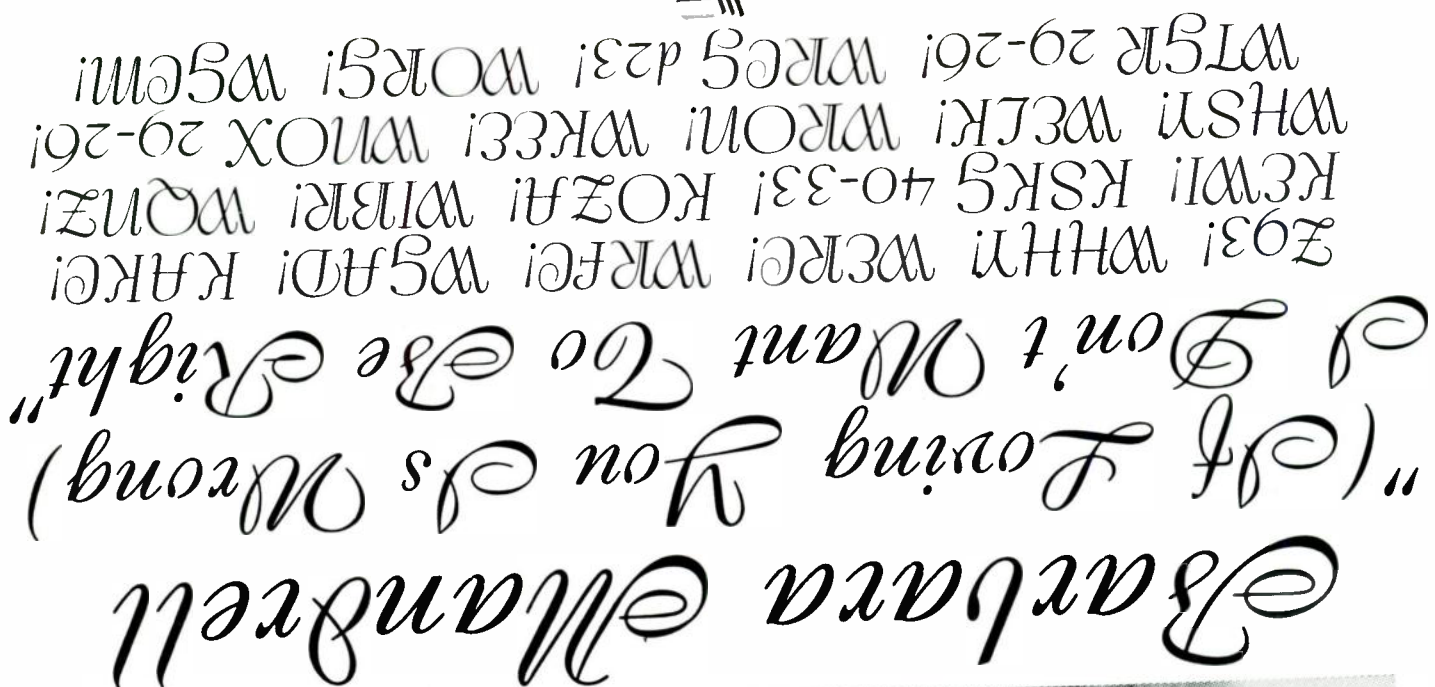 Barbara Mandrell
"(If Loving You Is Wrong)
I Don't Want To Be Right"
Z93! WHHY! WERC! WRFC! WGAD! KAKC!
KEWI! KSKG 40-33! KOZA! WIBR! WQNZ!
WHSY! WELK! WRON! WKEE! WNOX 29-26!
WTGR 29-26! WRCG d23! WORG! WGCM!